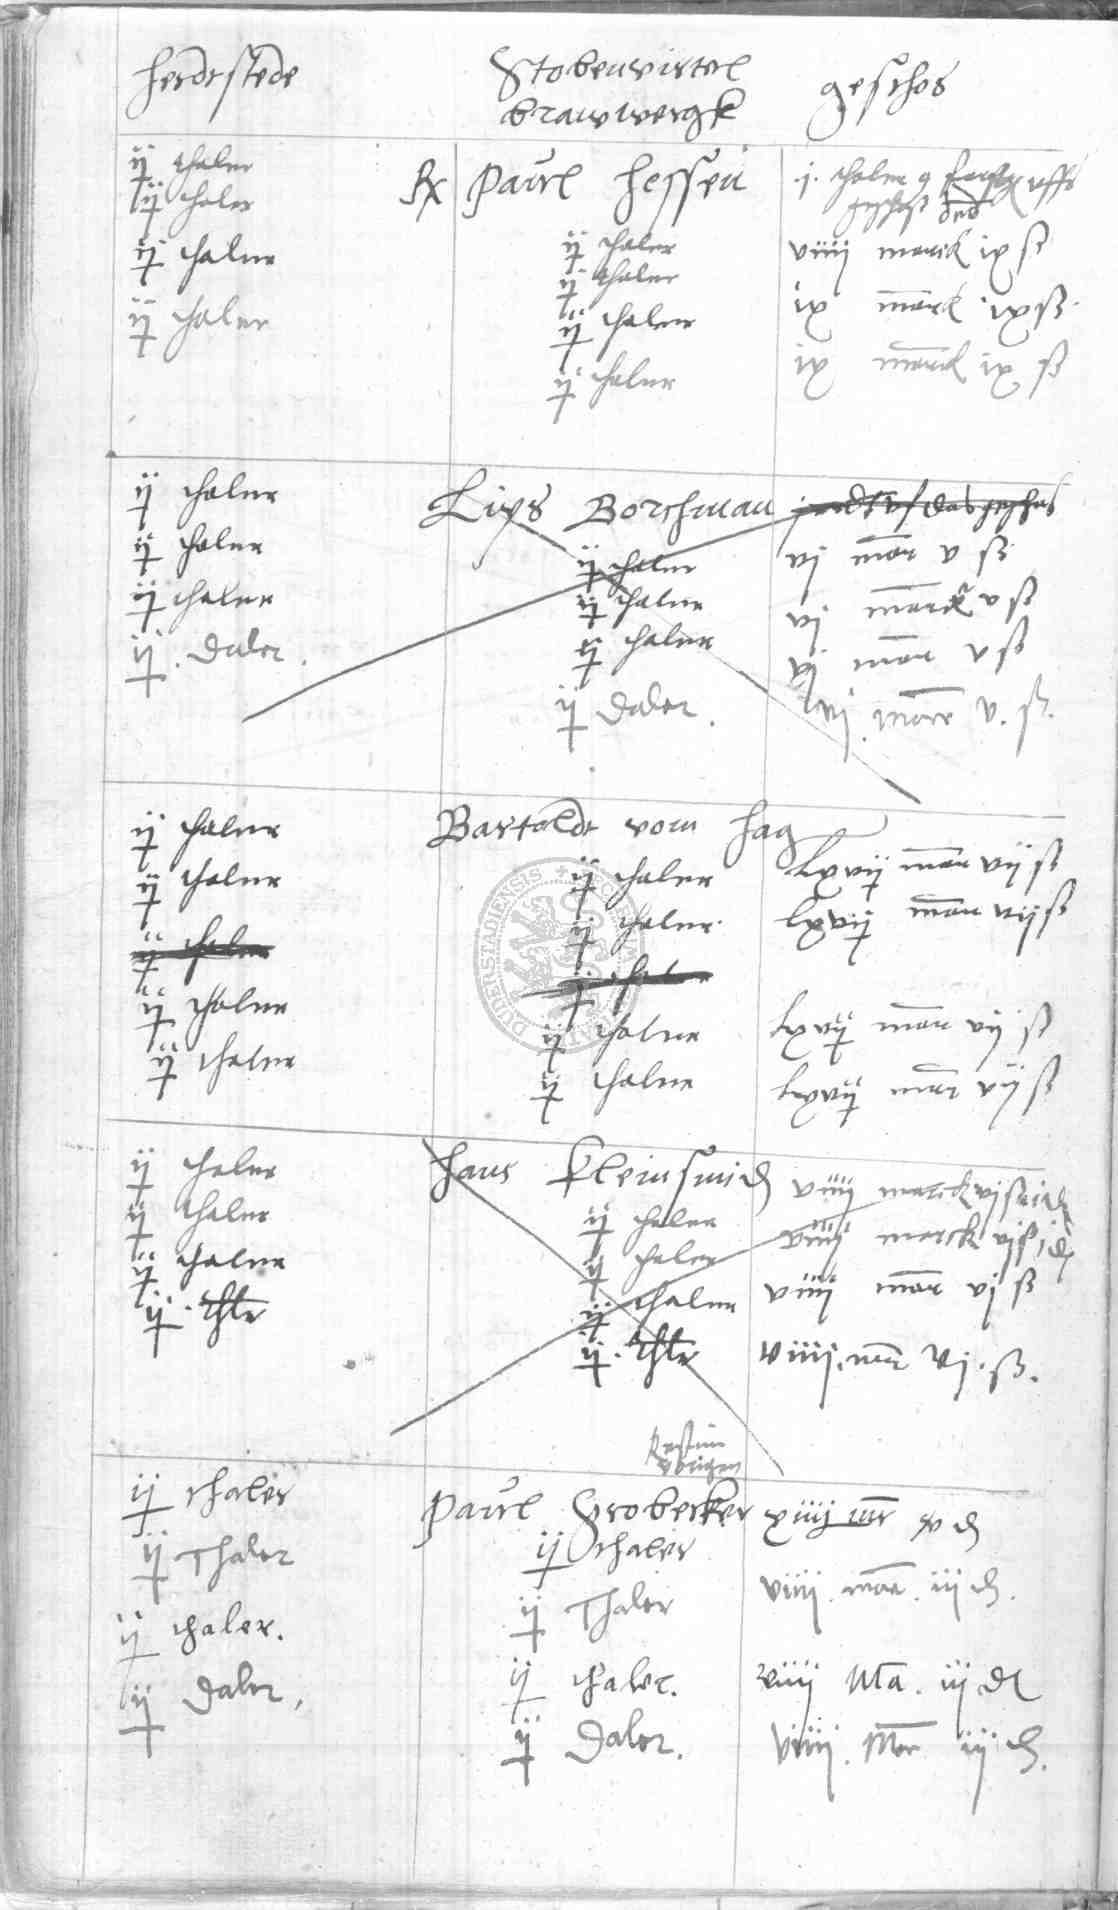 herdestede
Stobenvirtel
brauwergk
geschos
ij thaler
ij thaler
ij thaler
ij thaler
Rx Paul Hessen
ij thaler
ij thaler
ij thaler
ij thaler
j. thaler
geschos
viiij marck ix ß
ix marck ix ß
ix marck ix ß
ij thaler
ij thaler
ij thaler
ij. Daler.
Lips Borchman
ij thaler
ij thaler
ij thaler
ij Daler.
das geschos
vj mar v ß
vj marck v ß
vj mar v ß
vj. marc v. ß.
ij thaler
ij thaler
ij thaler
ij thaler
ij thaler
Bartoldt vom Hag
ij thaler
ij thaler
ij thaler
ij thaler
ij thaler
lxvij mar vij ß
lxvij mar vij ß
lxvij mar vij ß
lxvij mar vij ß
DUDERSTADIENSIS
ij thaler
ij thaler
ij thaler
ij. thlr
Hans Kleinsmid
ij thaler
ij thaler
ij thaler
ij. thlr
viiij marck vj ß i d
viiij marck vj ß i d
viiij mar vj ß
viiij. mar vj. ß.
ij thaler
ij Thaler
ij thaler.
ij Daler,
Rest im
vorigen
Paul Grobecker
ij thaler
ij Thaler
ij thaler.
ij Daler.
xiiij mr v d
viiij. mar. iij d.
viiij Ma. iij d
viiij. Mar iij d.